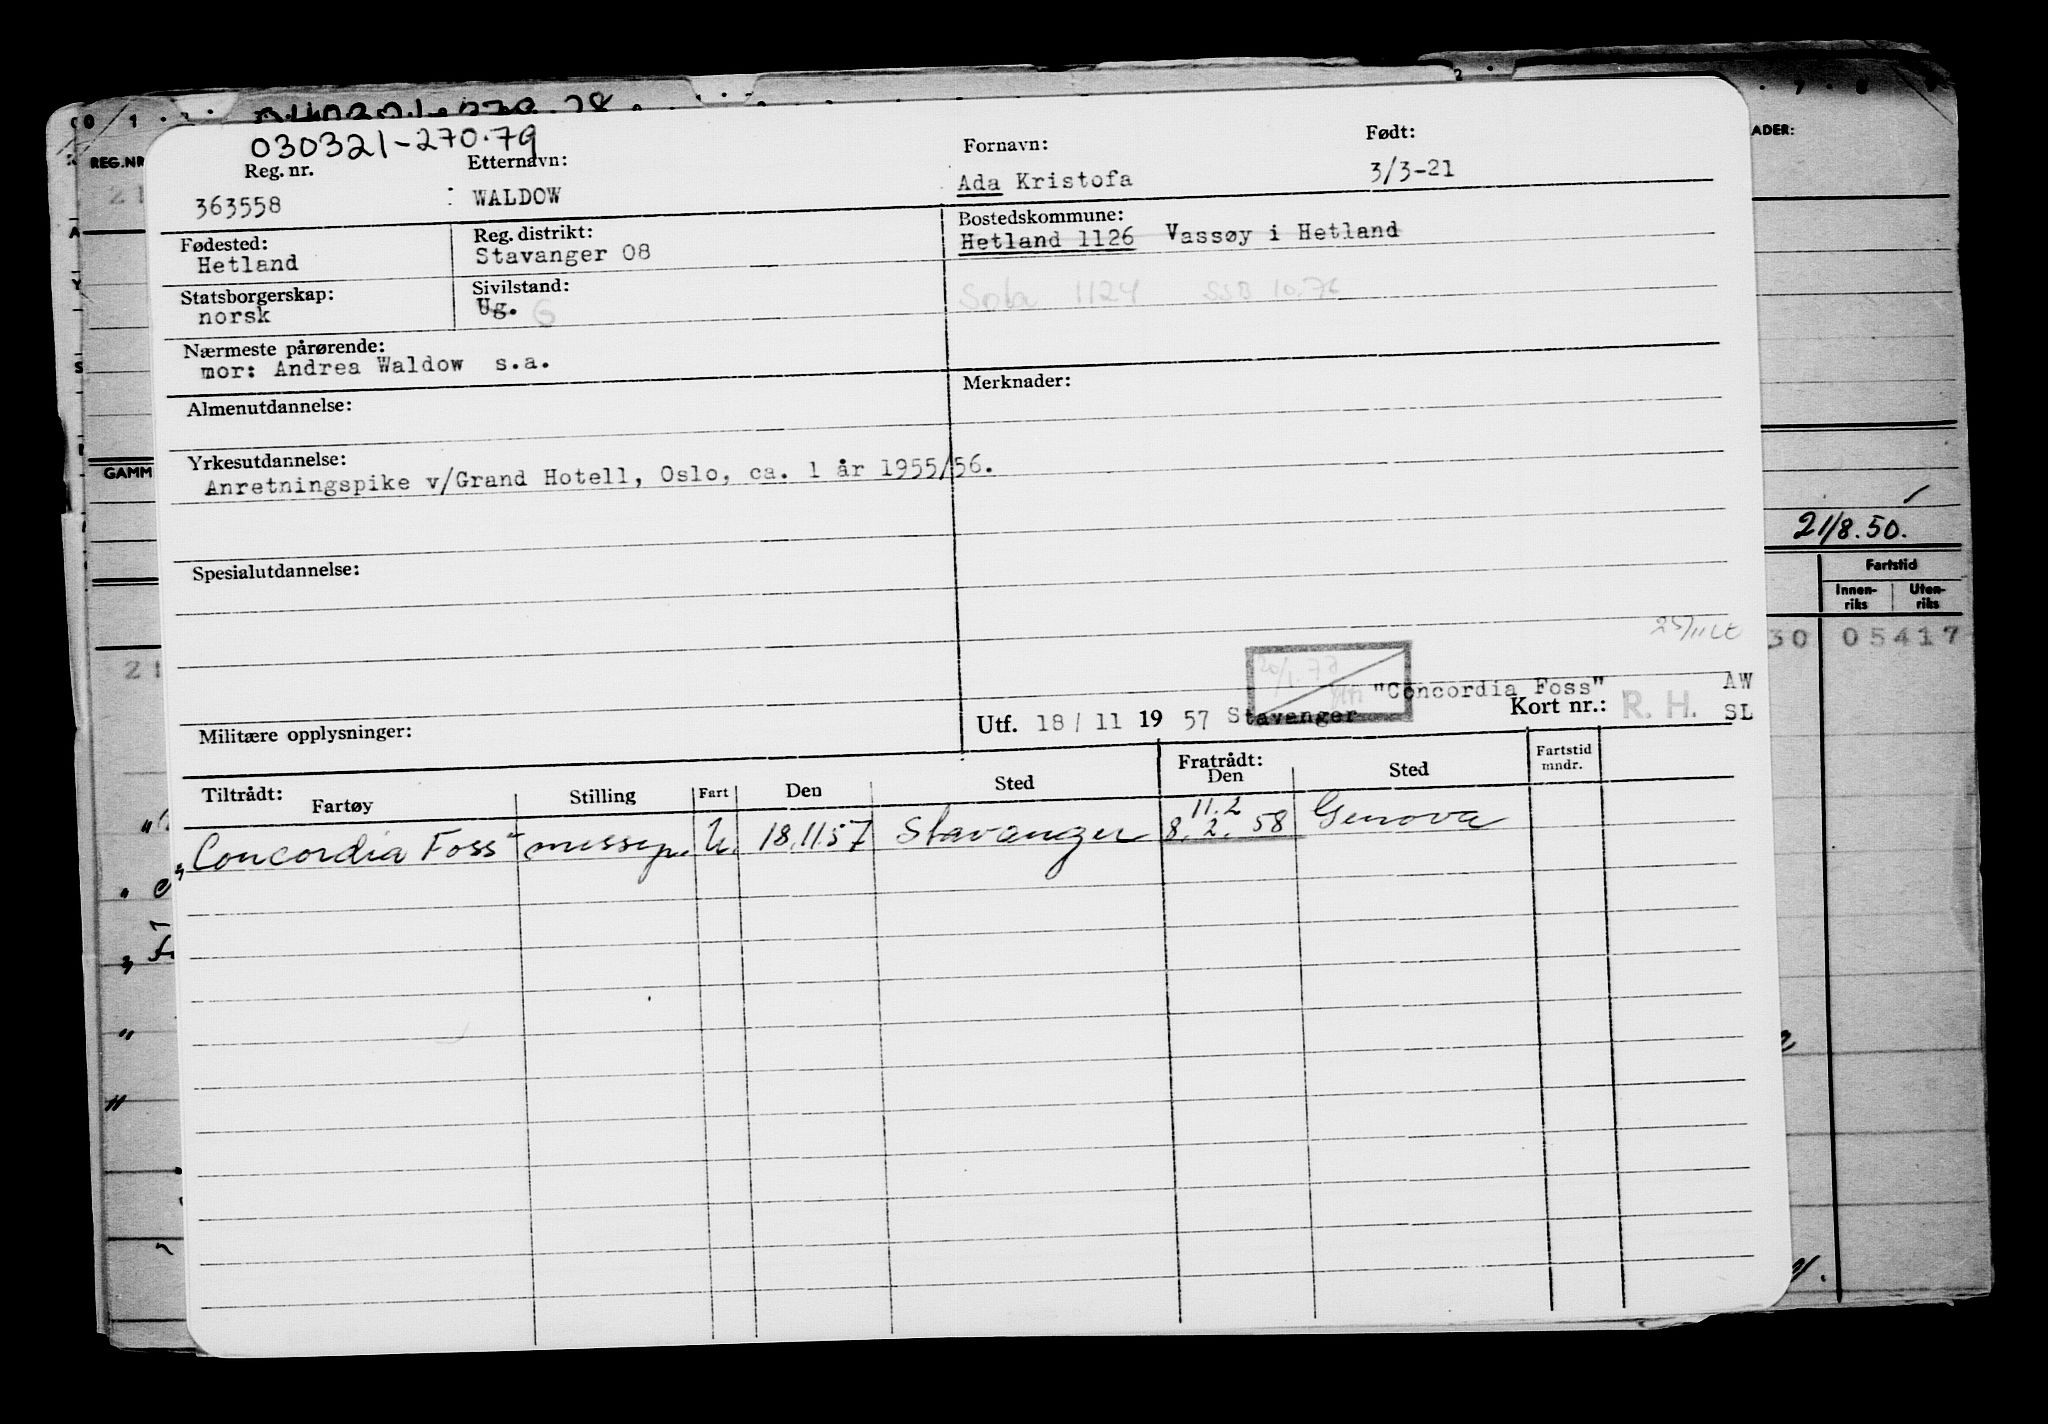 030321-270.79
Reg. nr. Etternavn: Fornavn: Født:
363558 : WALDOW Ada Kristofa 3/3-21
Fødested: Reg. distrikt: Bostedskommune:
Hetland Stavanger 08 Hetland 1126 Vassøy i Hetland
Statsborgerskap: Sivilstand: Sola 1124 SSB 10.76
norsk Ug. G
Nærmeste pårørende:
mor: Andrea Waldow s.a.
Almenutdannelse: Merknader:
Yrkesutdannelse:
Anretningspike v/Grand Hotell, Oslo, ca. 1 år 1955/56.
Spesialutdannelse:
"Concordia Foss" AW
Militære opplysninger: Utf. 18/11 1957 Stavanger Kort nr.: R. H. SL
Tiltrådt: Fratrådt: Fartstid
Fartøy Stilling Fart Den Sted Den Sted mndr.
11.2
"Concordia Foss" messep. U. 18.11.57 Stavanger 8.2.58 Genova
REG.NR
GAMM
ADER:
21/8.50.
Fartstid
Innen-riks Uten-riks
30 05417